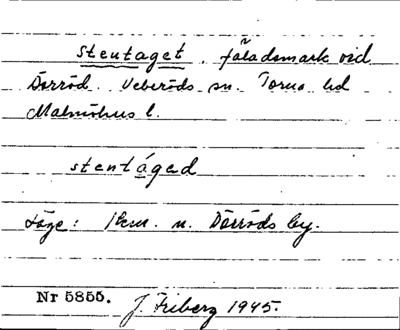 Stentaget, fäladsmark vid
Dörröd. Veberöds sn. Torna hd
Malmöhus l.
stentáged
Läge: 1 km. n. Dörröds by.
Nr 5855. J. Friberg 1945.